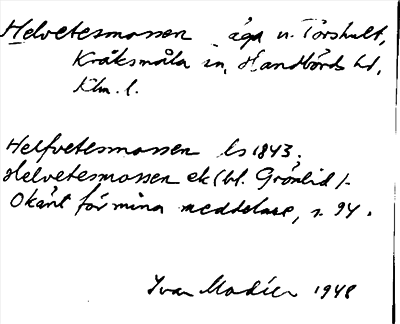 Helvetesmossen äga u. Torshult,
Kråksmåla sn, Handbörds hd,
Klm. l.
Helfvetesmossen ls 1843.
Helvetesmossen ek (bl. Grönlid).
Okänt för mina meddelare, s. 94.
Ivar Modéer 1948